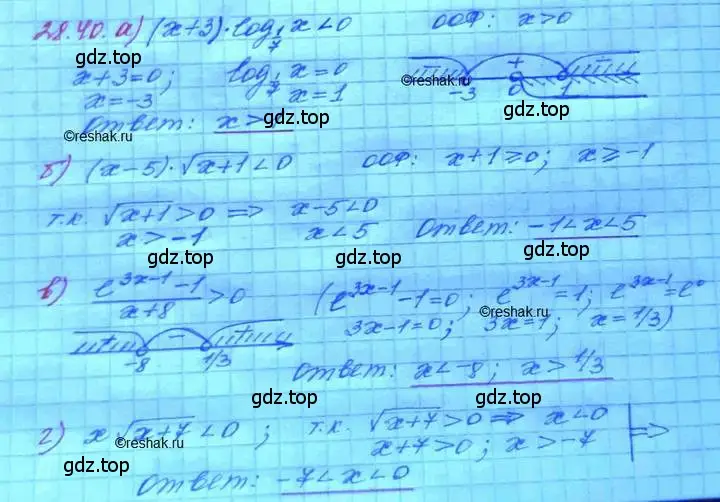 28.40. а) (x+3)·log_{1/7} x < 0   ООФ: x>0
gdz.top gdz.top
x+3=0; log_{1/7} x=0 + -3 0 1
x=-3 x=1
©reshak.ru gdz.top gdz.top gdz.top
Ответ: x>
©reshak.ru
б) (x-5)·√(x+1) < 0   ООФ: x+1≥0; x≥-1
т.к. √(x+1) > 0 => x-5<0
x>-1 x<5 Ответ: -1<x<5
gdz.top gdz.top
в) (e^{3x-1}-1)/(x+8) > 0 (e^{3x-1}-1=0; e^{3x-1}=1; e^{3x-1}=e^0
©reshak.ru
3x-1=0; 3x=1; x=1/3)
+ - + -8 1/3
Ответ: x<-8; x>1/3
gdz.top gdz.top
©reshak.ru
г) x√(x+7)<0; т.к. √(x+7)>0 => x<0
©reshak.ru
x+7>0; x>-7 =>
gdz.top gdz.top
Ответ: -7<x<0